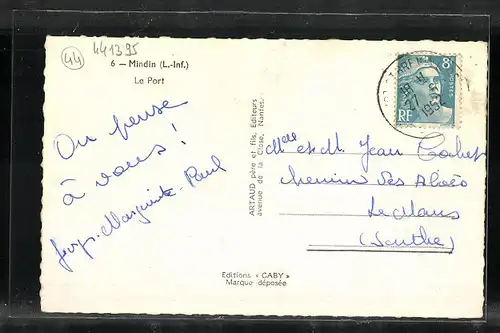 44
441395
6 — Mindin (L.-Inf.)
Le Port
On pense
à vous !
Marguerite - Paul
ARTAUD père et fils, Editeurs
avenue de la Close, Nantes.
Editions « GABY »
Marque déposée
8F
POSTES
RF
18 H
27
1952
Mme et M. Jean
Chemin des
Le Mans
(Sarthe)